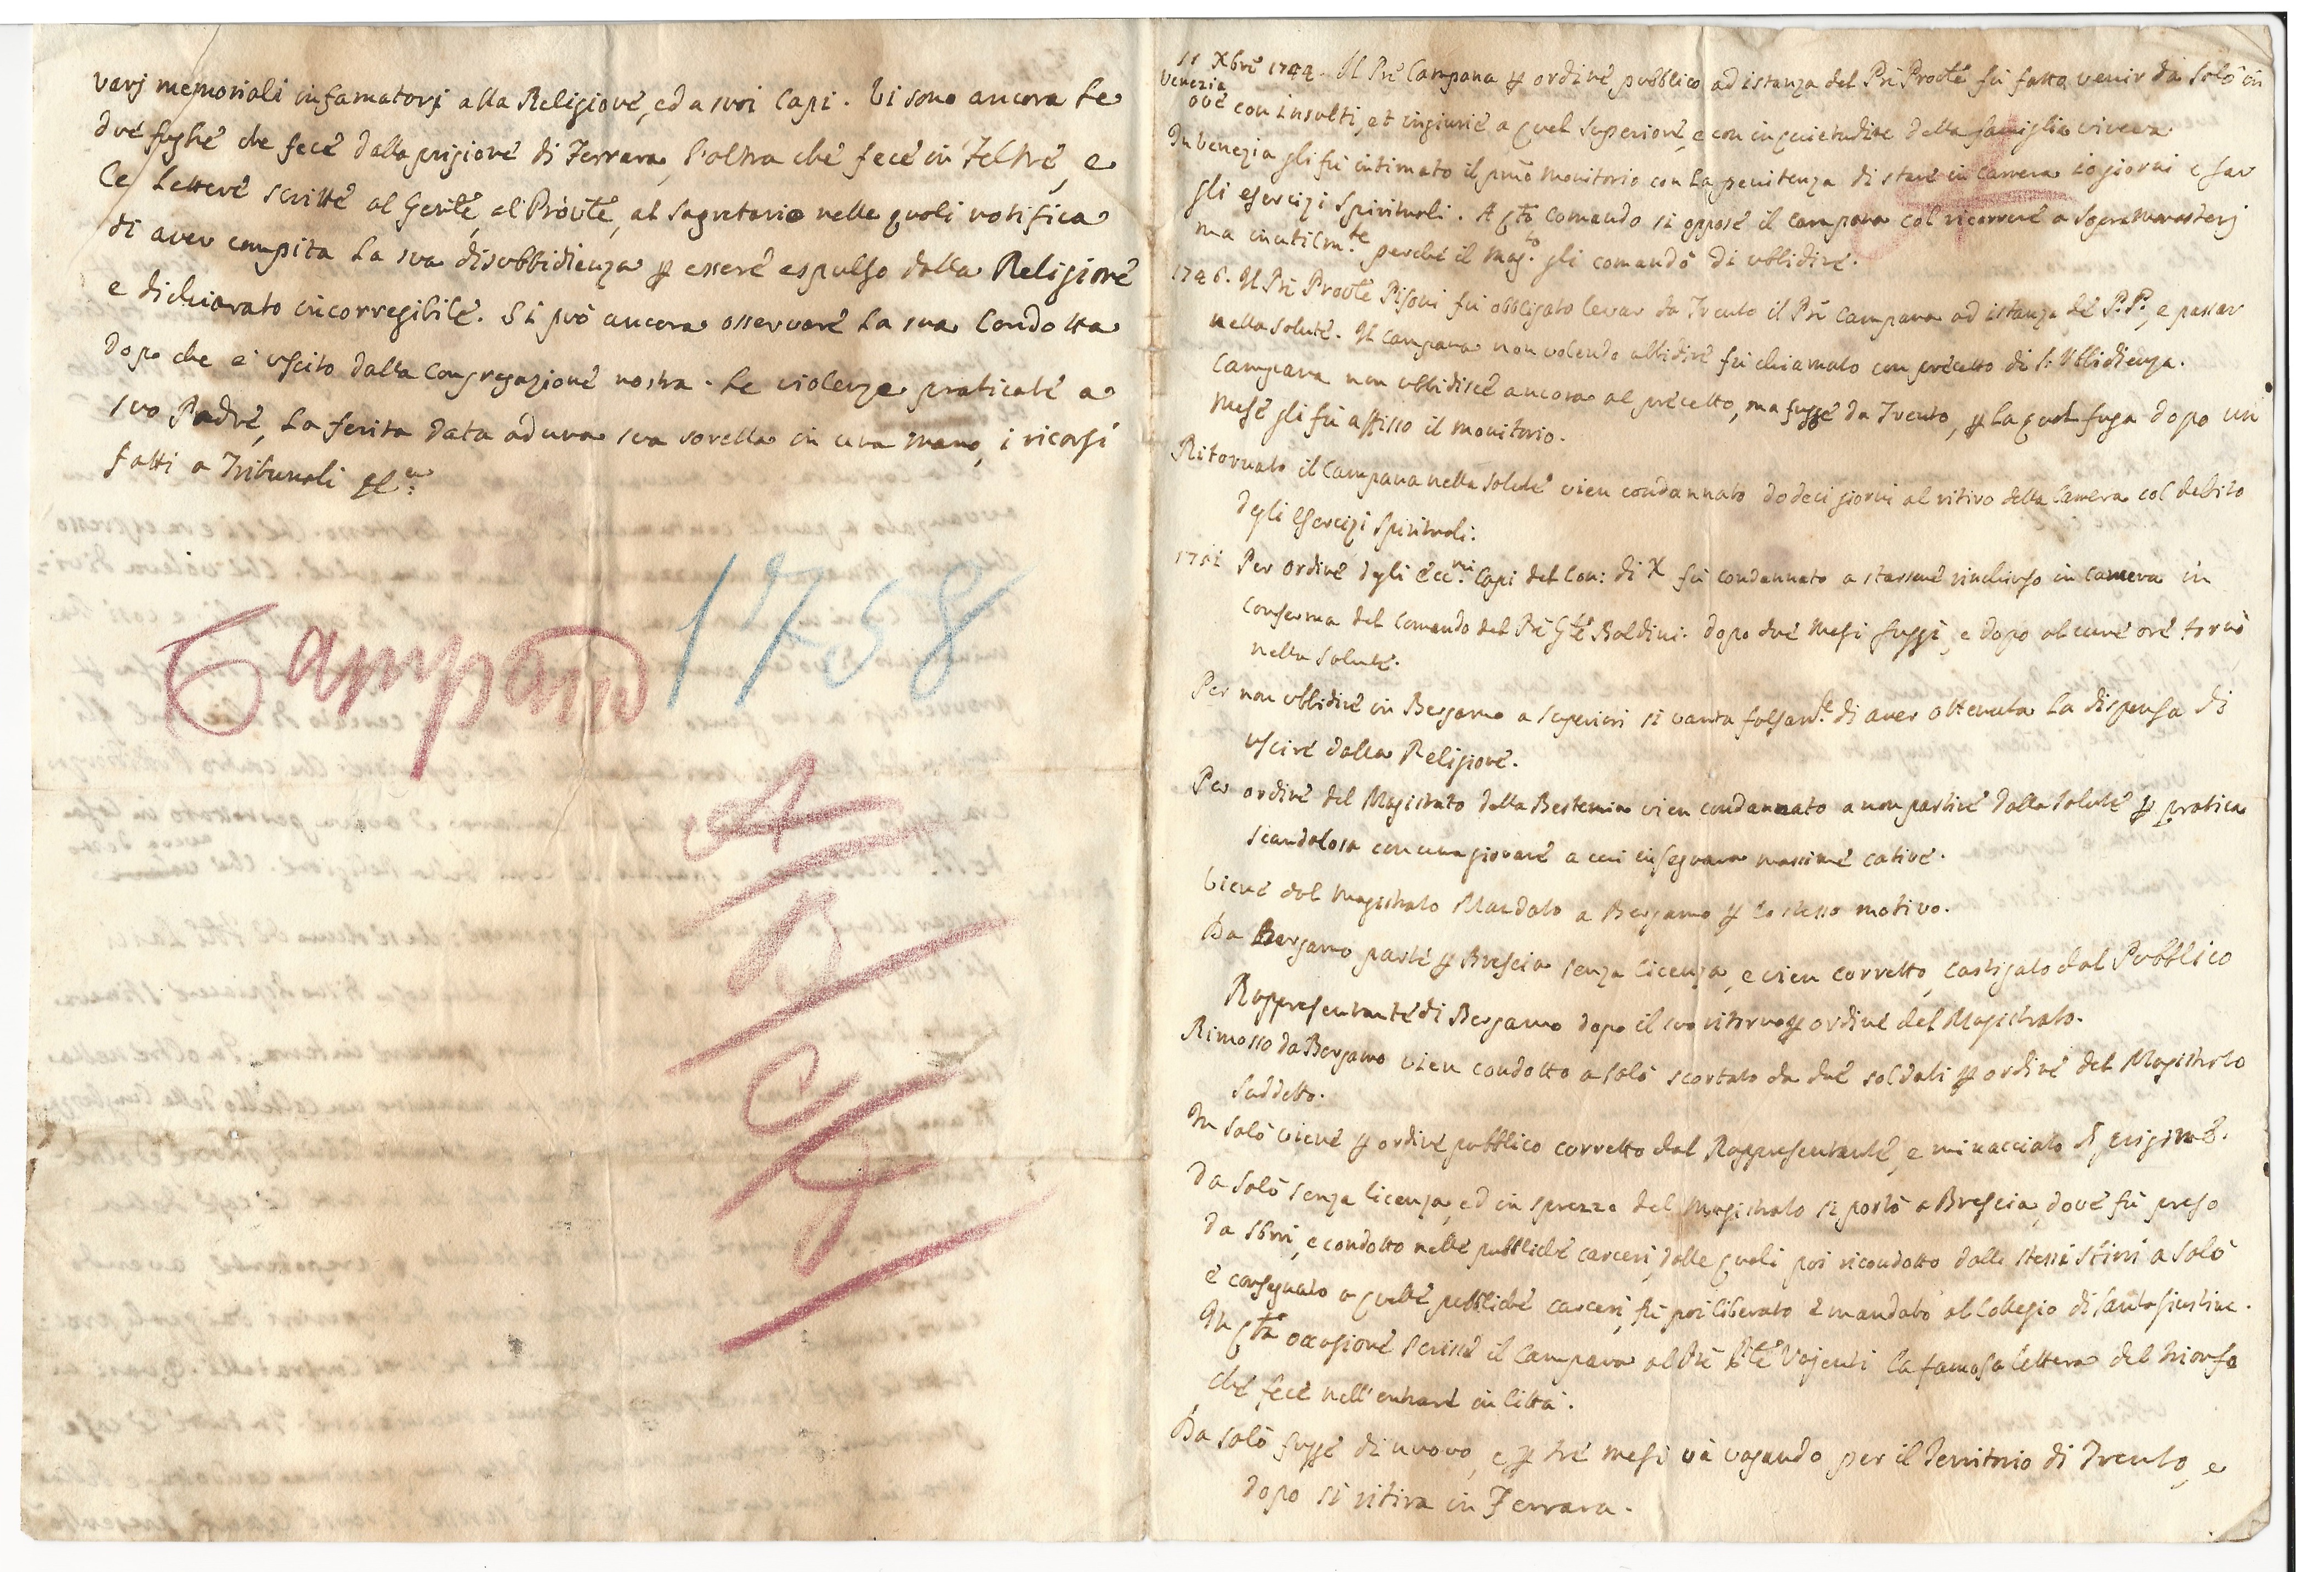 varj memoriali infamatorj alla Religione, ed a suoi Capi. Vi sono ancora le
due fughe che fece dalla prigione di Ferrara, l'altra che fece in Feltre, e
le lettere scritte al Gen̄le, al Provle, al Segretario nelle quali notifica
di aver compita la sua disubbidienza p esserè espulso dalla Religione
e dichiarato incorregibile. Si può ancora osservare la sua condotta
dopo che è uscito dalla Congregazione nostra. Le violenze praticate a
suo Padre, la ferita data ad una sua sorella in una mano, i ricorsi
fatti a Tribunali
Campana 1758
A
B
C
D
11 Xbre 1744. Il Pre Campana p ordine pubblico ad istanza del Pre Provle fù fatto venir da Salò in
Venezia
ove con insulti, et ingiurie a quel Superiore, e con inquietudine della famiglia viveva.
In Venezia gli fù intimato il pmo monitorio con la penitenza di stare in camera 10 giorni e far
gli esercizj Spirituali. A qto comando si oppose il Campana col ricorrere a Sopramonasterj
ma inutilmte perchè il Mag.to gli comandò di ubbidire.
1746. Il Pre Provle Pisoni fu obbligato levar da Trento il Pre Campana ad istanza de PP., e passar
nella Salute. Il Campana non volendo ubbidire fu chiamato con precetto di S. Ubbidienza.
Campana non ubbidisce ancora al precetto, ma fugge da Trento, p la qual fuga dopo un
mese gli fù affisso il monitorio.
Ritornato il Campana nella Salute vien condannato dodeci giorni al ritiro della Camera col debito
degli esercizj Spirituali.
1751 Per ordine degli Ecc.mi Capi del Con: di X fu condannato a starsene rinchiuso in camera in
conferma del comando del Pre Gle Baldini. dopo due mesi fuggì, e dopo alcune ore tornò
nella Salute.
Per non ubbidire in Bergamo a superiori si vanta falsamte di aver ottenuta la dispensa di
uscire dalla Religione.
Per ordine del Magistrato della Bestemia vien condannato a non partire dalla Salute p pratica
scandalosa con una giovane a cui insegnava massime cative.
Viene dal Magistrato Mandato a Bergamo p lo stesso motivo.
Da Bergamo parte p Brescia senza licenza, e vien corretto, castigato dal Pubblico
Rappresentante di Bergamo dopo il suo ritorno p ordine del Magistrato.
Rimosso da Bergamo vien condotto a Salò scortato da due soldati p ordine del Magistrato
suddetto.
In Salò viene p ordine pubblico corretto dal Rappresentante, e minacciato di prigione.
Da Salò senza licenza, ed in sprezzo del Magistrato si portò a Brescia, dove fù preso
da sbirri, e condotto nelle pubbliche carceri, dalle quali poi ricondotto dalli stessi sbirri a Salò
e consegnato a quelle pubbliche carceri, fù poi liberato e mandato al Collegio di Santa Giustina.
In qta occasione scrisse il Campana al Pre Vajenti la famosa lettera del trionfo
che fece nell'entrare in Città.
Da Salò fugge di nuovo, e p tre mesi và vagando per il Territorio di Trento, e
dopo si ritira in Ferrara.